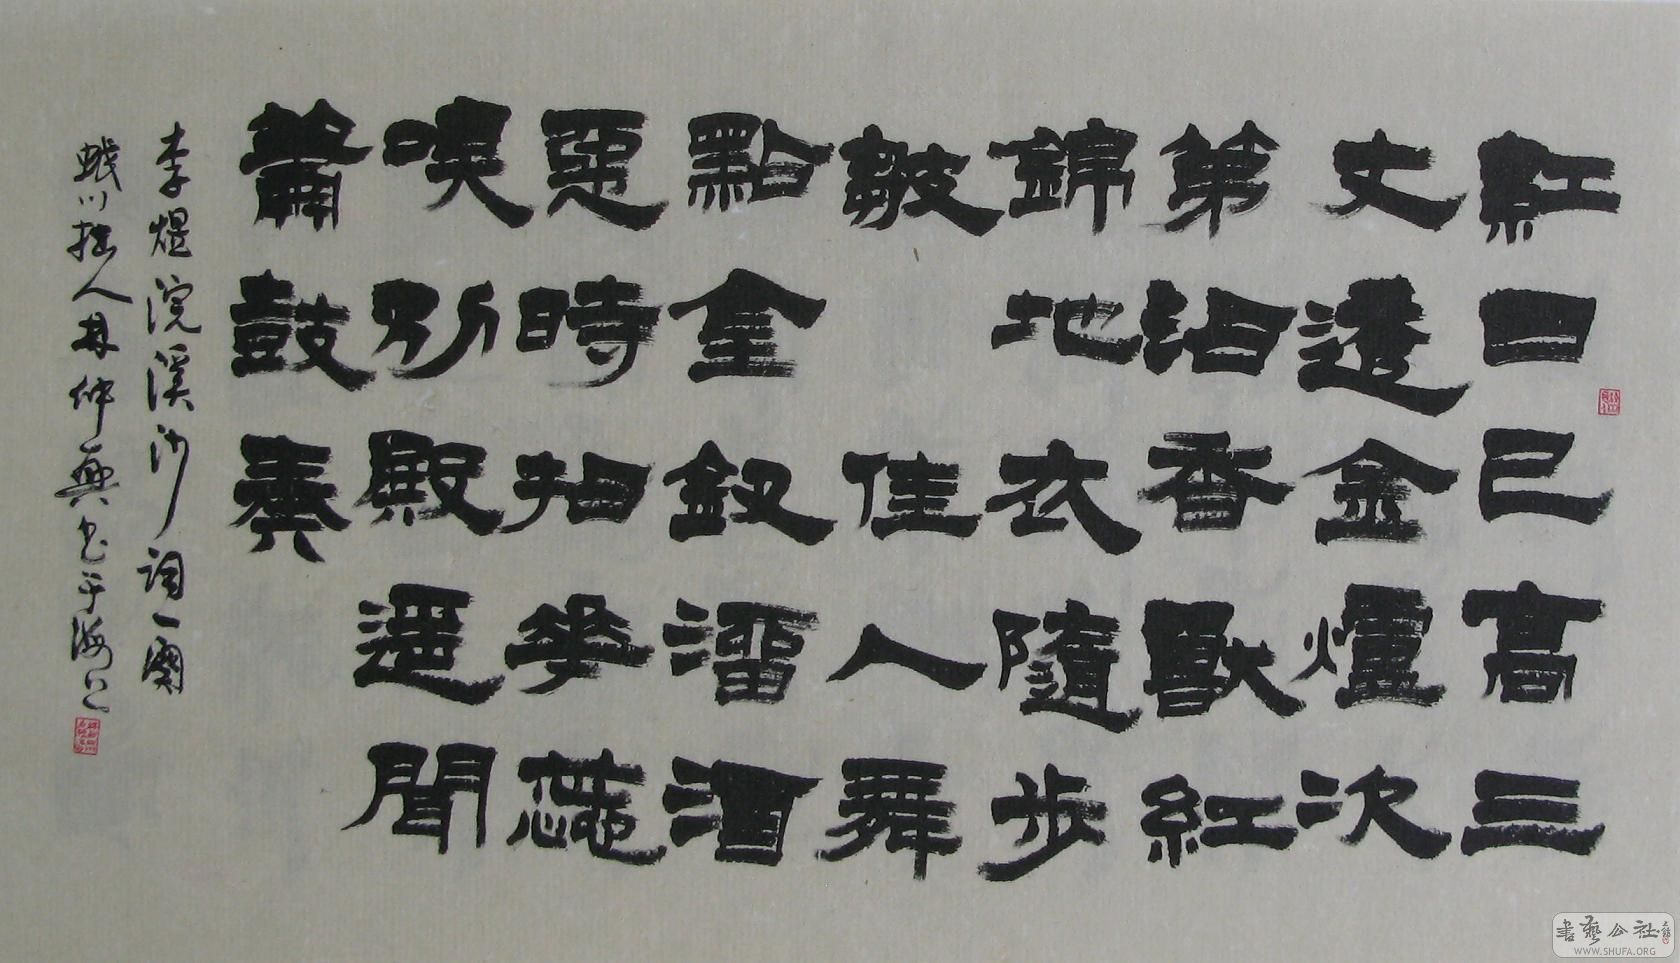 紅日已高三
丈透金爐次
第沾香獸紅
錦地衣隨步
皺 佳人舞
點金釵溜酒
惡時拈華蕊
嗅別殿還聞
蕭鼓奏
李煜浣溪沙詞一闋
川拙人林仲興書于海上
書藝公社
WWW.SHUFA.ORG